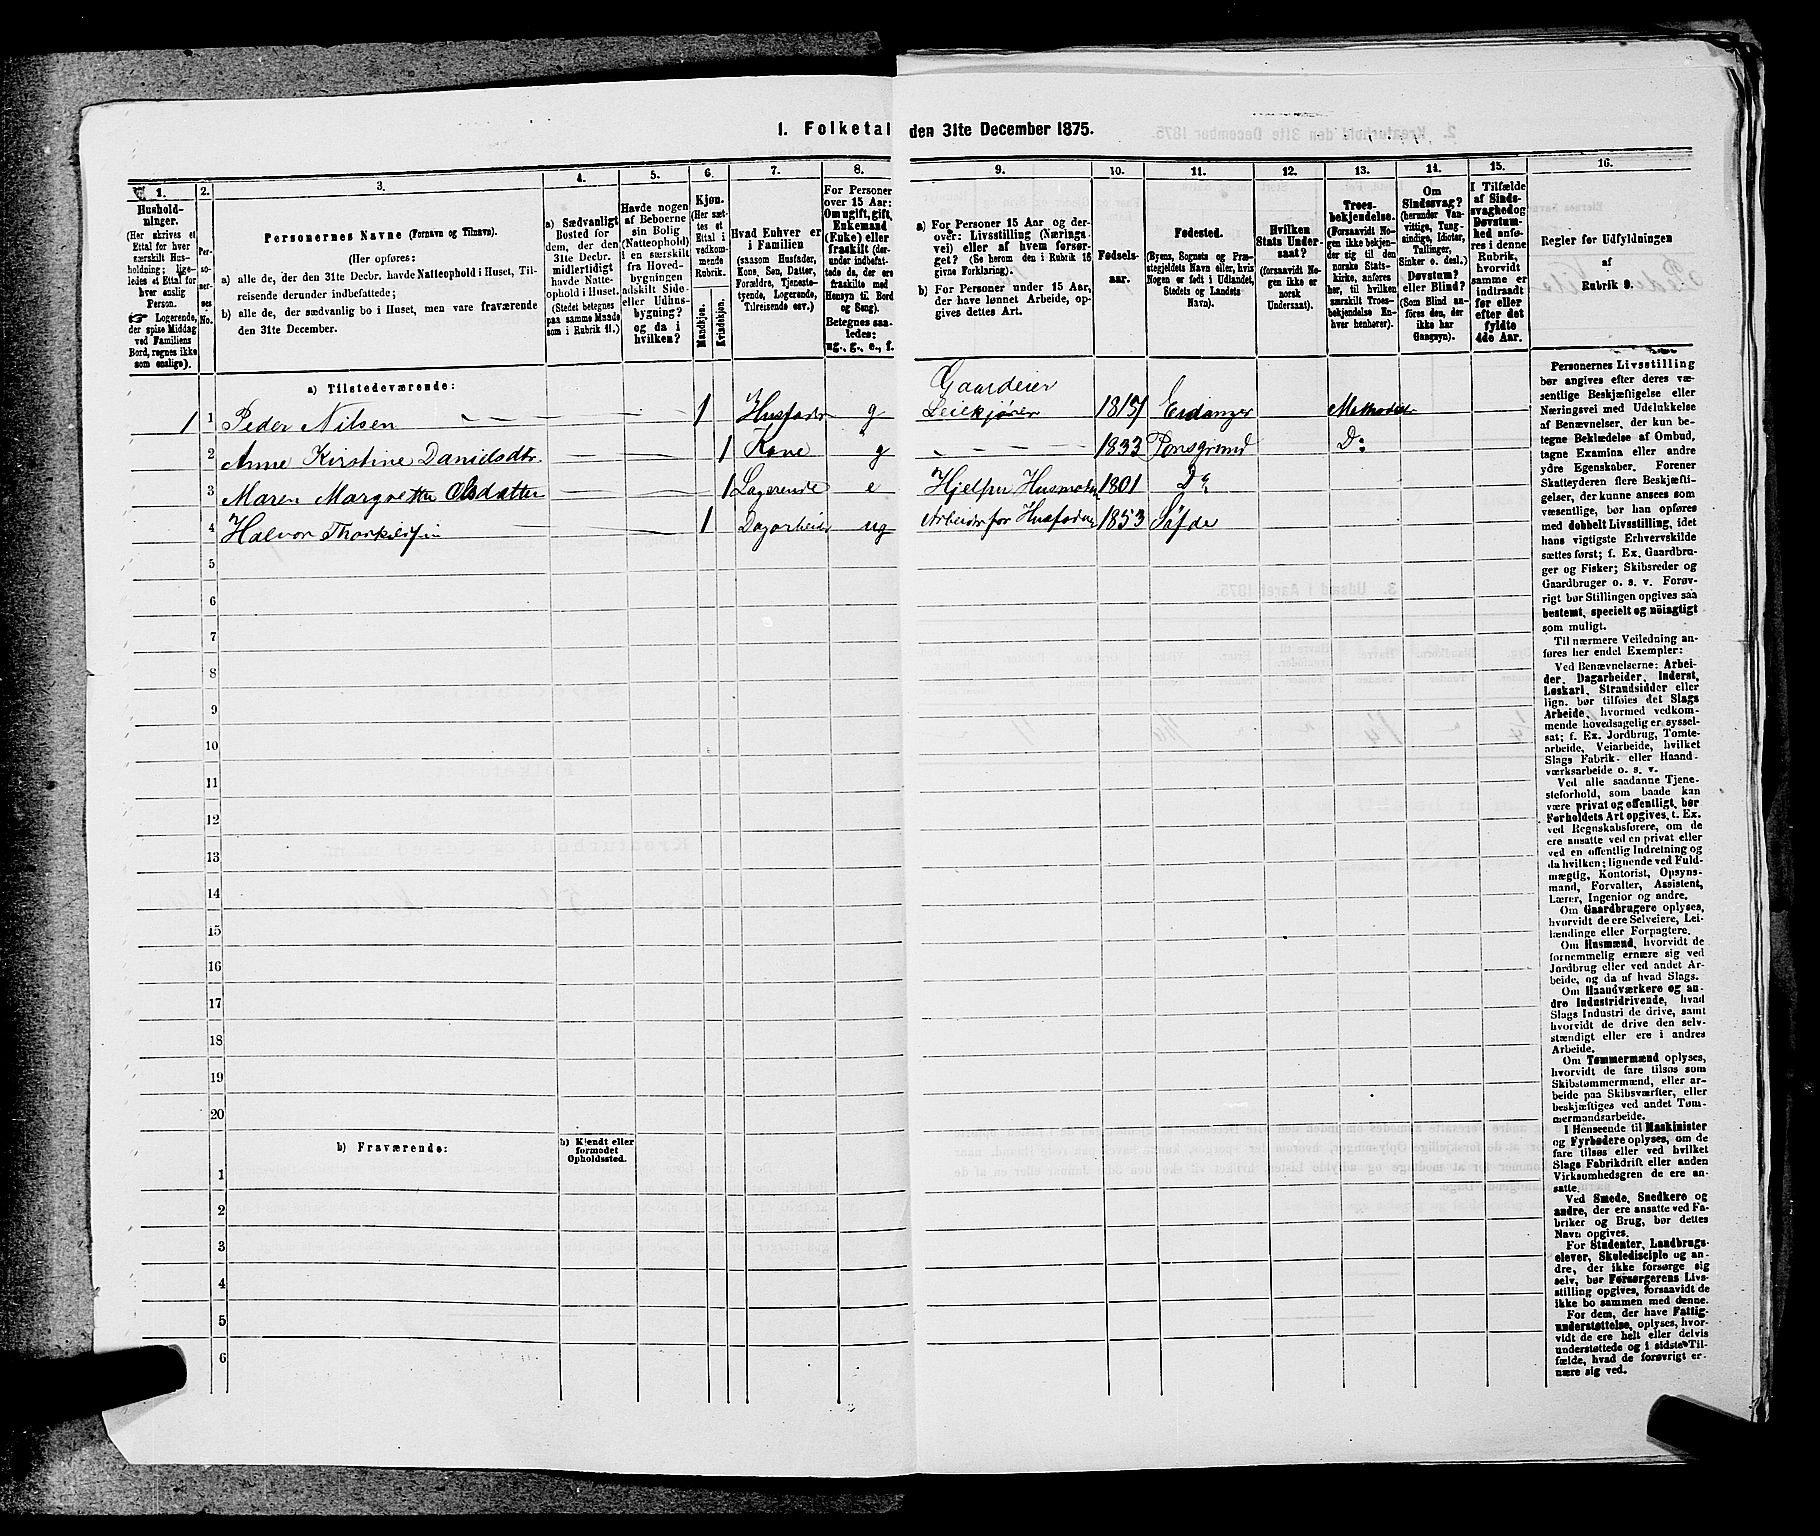 1. Folketal den 31te December 1875.
1. 2. 3. 4. 5. 6. 7. 8. 9. 10. 11. 12. 13. 14. 15. 16.
Husholdninger.
(Her skrives et
Ettal for hver
særskilt Husholdning;
ligeledes et Ettal for
hver enslig
Person.
☞ Logerende,
der spise Middag
ved Familiens
Bord, regnes ikke
som enslige).
Personernes No.
Personernes Navne (Fornavn og Tilnavn).
(Her opføres:
a) alle de, der den 31te Decbr. havde Natteophold i Huset, Tilreisende derunder indbefattede;
b) alle de, der sædvanlig bo i Huset, men vare fraværende
den 31te December.
a) Sædvanligt
Bosted for
dem, der den
31te Decbr.
midlertidigt
havde Natteophold i Huset.
(Stedet betegnes
paa samme Maade
som i Rubrik 11.)
Havde nogen
af Beboerne
sin Bolig
(Natteophold)
i en særskilt
fra Hovedbygningen
adskilt Side- eller Udhusbygning?
og da i
hvilken?
Kjøn.
(Her sættes et
Ettal i
vedkommende
Rubrik.
Mandkjøn.
Kvindekjøn.
Hvad Enhver er
i Familien
(saasom Husfader,
Kone, Søn, Datter,
Forældre, Tjenestetyende, Logerende,
Tilreisende osv.)
For Personer
over 15 Aar:
Om ugift, gift,
Enkemand
(Enke) eller
fraskilt (derunder indbefattede de, der ere
fraskilte med
Hensyn til Bord
og Seng).
Betegnes saaledes:
ug., g., e., f.
a) For Personer 15 Aar og derover: Livsstilling (Næringsvei) eller af hvem forsørget? (Se herom den i Rubrik 16
givne Forklaring).
b) For Personer under 15 Aar,
der have lønnet Arbeide, opgives dettes Art.
Fødselsaar.
Fødested.
(Byens, Sognets og Præstegjeldets Navn eller, hvis
Nogen er født i Udlandet,
Stedets og Landets
Navn).
Hvilken
Stats Undersaat?
(forsaavidt Nogen ikke er
norsk
Undersaat).
Troesbekjendelse.
(Forsaavidt Nogen ikke bekjender sig til den
norske Statskirke, anføres
her, til hvilken
særskilt Troesbekjendelse Enhver henhører).
Om
Sindssvag?
(herunder Vanvittige, Tungsindige, Idioter,
Tullinger,
Sinker o. desl.)
Døvstum?
eller Blind?
(Som Blind anføres den, der
ikke har
Gangsyn).
I Tilfælde
af Sindssvaghed og
Døvstumhed anføres i denne
Rubrik,
hvorvidt
samme er
indtraadt
før eller
efter det
fyldte
4de Aar.
Regler for Udfyldningen
af
Rubrik 9.
a) Tilstedeværende:
1 1 Peder Nilsen 1 Husfader g Gaardeier Leiekjører 1815 Eidanger Methodist
2 Anne Kirstine Danielsdtr. 1 Kone g 1833 Porsgrund Do
3 Maren Margrethe Olsdatter 1 Logerende e Hjelper Husmoder 1801 Do
4 Halvor Thorkildsen 1 Dagarbeider ug Arbeider for Husfader 1853 Silfde
5
6
7
8
9
10
11
12
13
14
15
16
17
18
19
20
b) Fraværende:
b) Kjendt eller
formodet
Opholdssted.
1
2
3
4
5
6
Personernes Livsstilling
bør angives efter deres væsentlige Beskjæftigelse eller
Næringsvei med Udelukkelse
af Benævnelser, der kun betegne Beklædelse af Ombud,
tagne Examina eller andre
ydre Egenskaber. Forener
Skatteyderen flere Beskjæftigelser, der kunne ansees som
væsentlige, bør han opføres
med dobbelt Livsstilling, idet
hans vigtigste Erhvervskilde
sættes først; f. Ex. Gaardbruger og Fisker; Skibsreder og
Gaardbruger o. s. v. Forøvrigt bør Stillingen opgives saa
bestemt, specielt og nøiagtigt
som muligt.
Til nærmere Veiledning anføres her endel Exempler:
Ved Benævnelserne: Arbeider, Dagarbeider, Inderst,
Løskarl, Strandsidder eller
lign. bør tilføies det Slags
Arbeide, hvormed vedkommende hovedsagelig er sysselsat; f. Ex. Jordbrug, Tomtearbeide, Veiarbeide, hvilket
Slags Fabrik- eller Haandværksarbeide o. s. v.
Ved alle saadanne Tjenesteforhold, som baade kan
være privat og offentligt, bør
Forholdets Art opgives, t. Ex.
ved Regnskabsførere, om de
ere ansatte ved en privat eller
ved en offentlig Indretning og
da hvilken; lignende ved Fuldmægtig, Kontorist, Opsynsmand, Forvalter, Assistent,
Lærer, Ingeniør og andre.
Om Gaardbrugere oplyses,
hvorvidt de ere Selveiere, Leilændinge eller Forpagtere.
Om Husmænd, hvorvidt de
fornemmelig ernære sig ved
Jordbrug eller ved andet Arbeide, og da af hvad Slags.
Om Haandværkere og andre Industridrivende, hvad
Slags Industri de drive, samt
hvorvidt de drive den selvstændigt eller ere i andres
Arbeide.
Om Tømmermænd oplyses,
hvorvidt de fare tilsøs som
Skibstømmermænd, eller arbeide paa Skibsværfter, eller
beskjæftiges ved andet Tømmermandsarbeide.
I Henseende til Maskinister
og Fyrbødere oplyses, om de
fare tilsøs eller ved hvilket
Slags Fabrikdrift eller anden
Virksomhedsgren de ere ansatte.
Ved Smede, Snedkere og
andre, der ere ansatte ved Fabriker og Brug, bør dettes
Navn opgives.
For Studenter, Landbrugselever, Skoledisciple og andre, der ikke forsørge sig
selv, bør Forsørgerens Livsstilling opgives, forsaavidt de
ikke bo sammen med denne.
For dem, der have Fattigunderstøttelse, oplyses, hvorvidt de ere helt eller delvis
understøttede og i sidste Tilfælde, hvad de forøvrigt ernære sig ved.